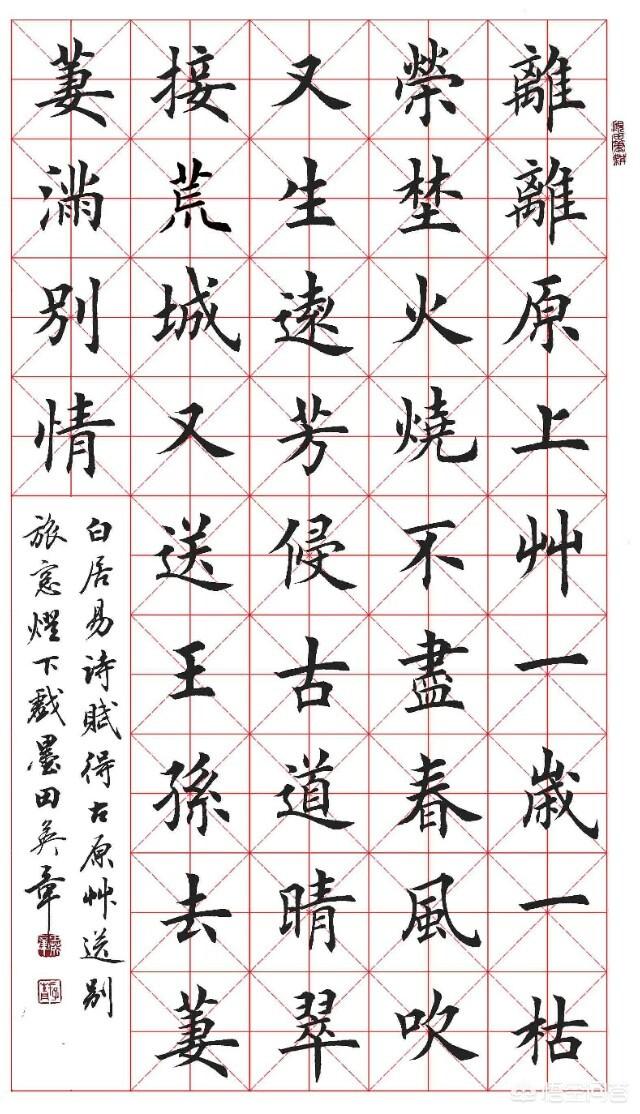 離離原上艸一歲一枯
榮埜火燒不盡春風吹
又生遠芳侵古道晴翠
接荒城又送王孫去萋
萋滿別情
白居易詩賦得古原艸送别
旅窓燈下戲墨田英章
悟空问答